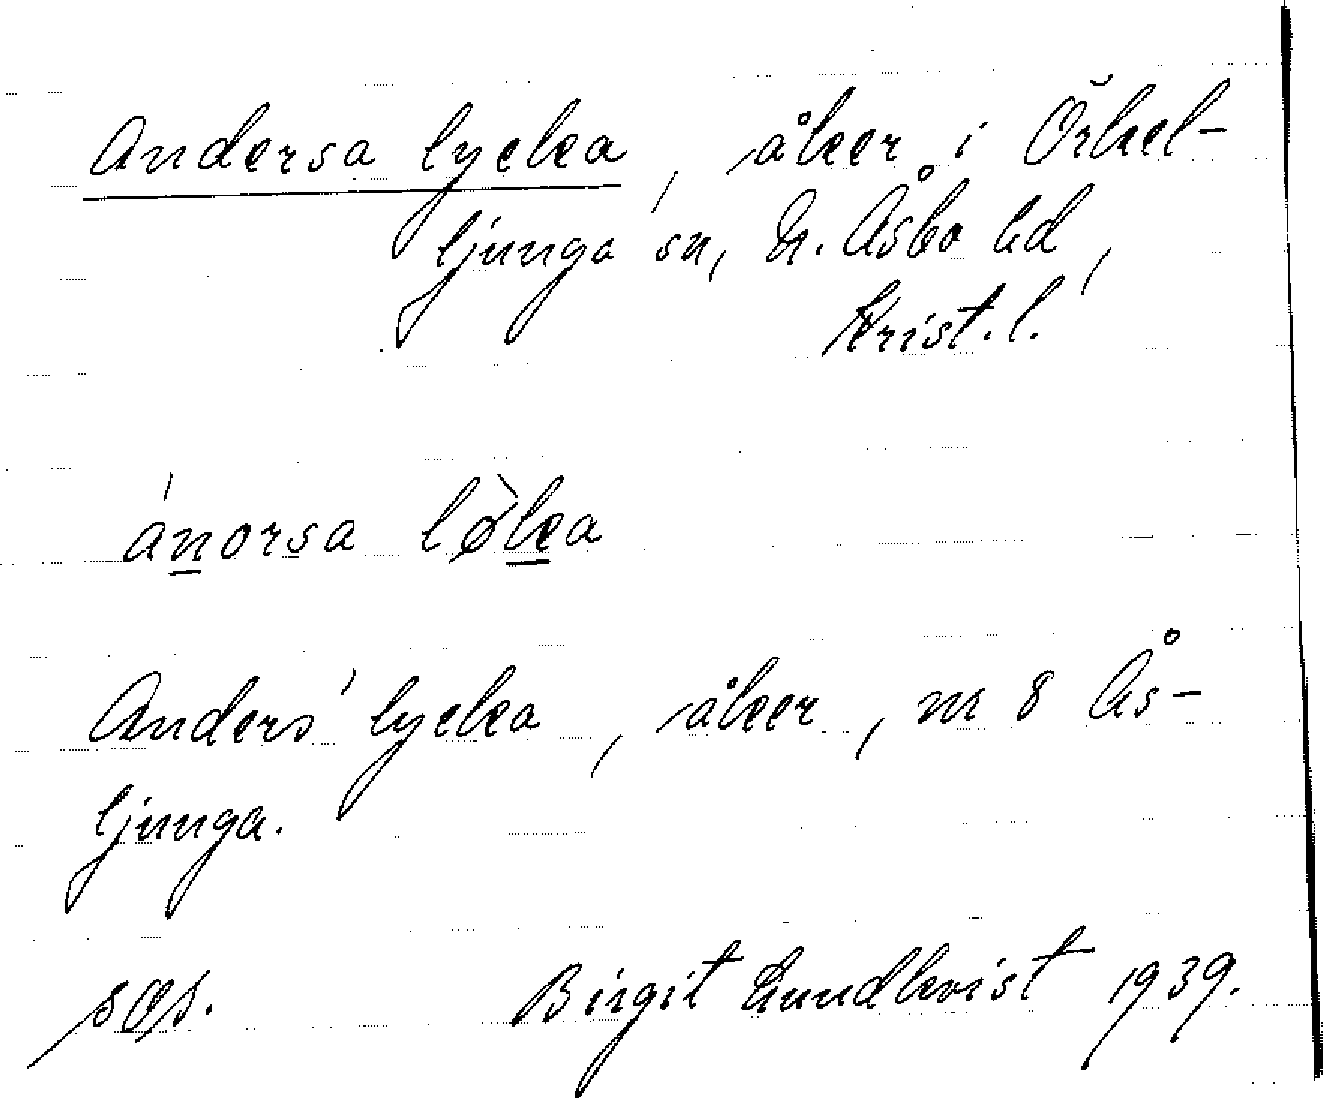 Andersa lycka, åker i Örkel-
ljunga sn, N. Åsbo hd,
Krist. l.
ánorsa lø̀ka
Anders' lycka, åker, m 8 Ås-
ljunga.
Birgit Lundkvist 1939.